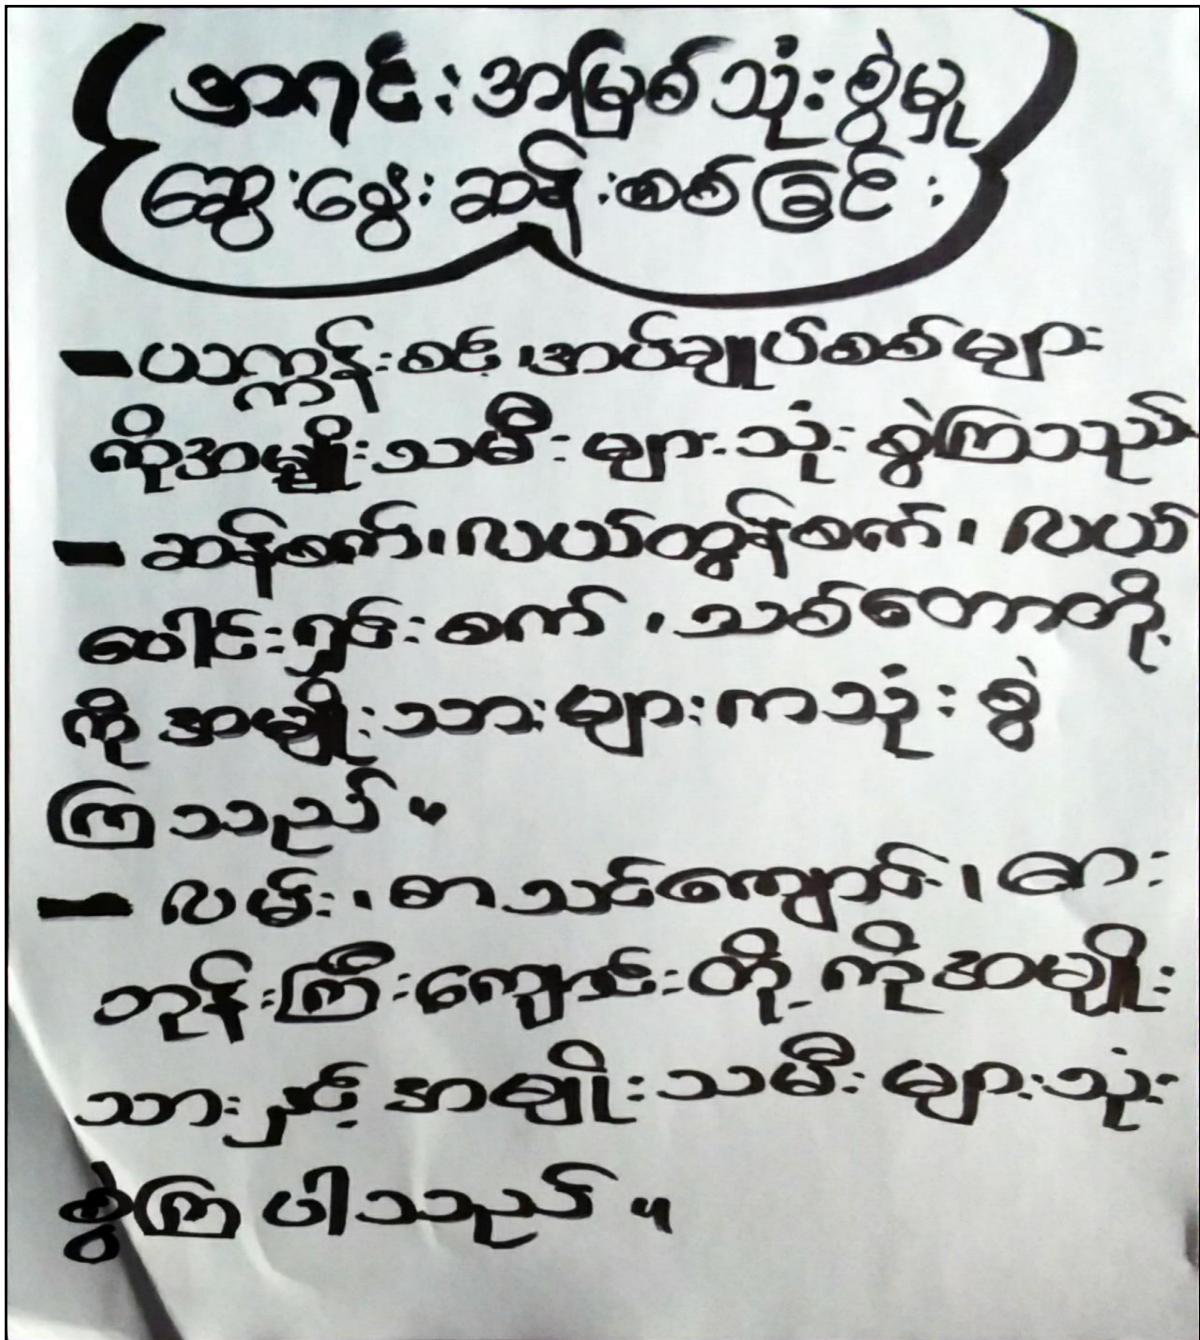 အရင်းအမြစ်သုံးစွဲမှု
ဆွေးနွေးဆန်းစစ်ခြင်း
- ယက္ကန်းစင်၊ အပ်ချုပ်စစ်များ
ကိုအမျိုးသမီးများသုံးစွဲကြသည်
- ဆန်စက်၊ လယ်ထွန်စက်၊ လယ်
ပေါင်းရှင်းစက်၊ သစ်တောတို့
ကိုအမျိုးသားများကသုံးစွဲ
ကြသည်။
- လမ်း၊ စာသင်ကျောင်း၊ ဆေး
ဘုန်းကြီးကျောင်းတို့ကိုအမျိုး
သားနှင့်အမျိုးသမီးများသုံး
စွဲကြပါသည်။